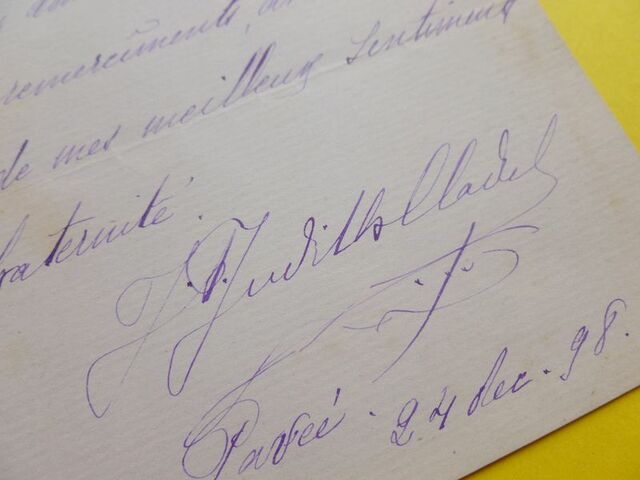 remerciments,
de mes meilleurs sentiments
fraternité.
J. Judith Cladel
24 dec. 98.